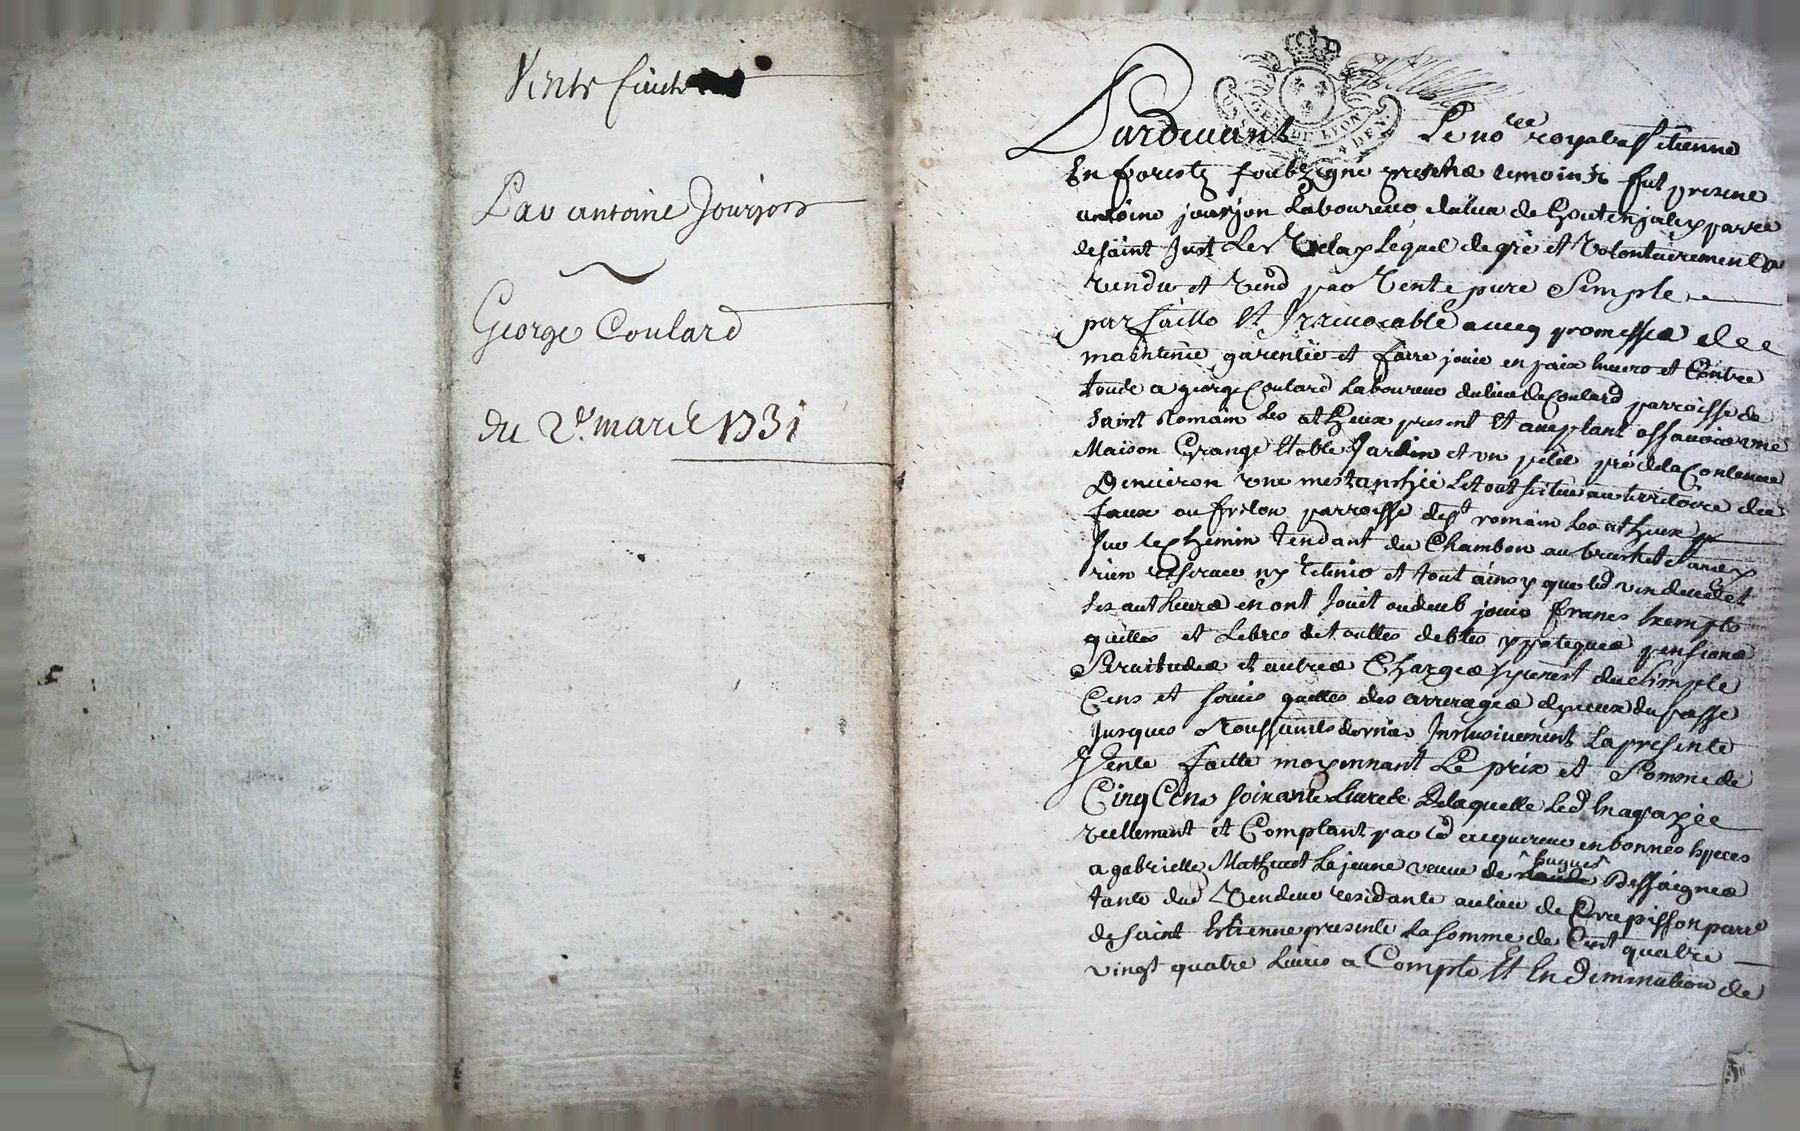 Vente faicte
Par antoine Jourjon
George Coulard
du 2e. mars 1731
GEN DE LYON
Pardevant Le nore royal a st etienne
En forestz soubzigné presentz temoins fut present
antoine jourjon Laboureur du lieu de parre
de saint Just Les Velay Lequel de gré et volontairement a
vendu et vend par vente pure Simple
parfaitte Et Irrevocable avecq promesse de
maintenir garentir et faire jouir en paix envers et Contre
touts a george Coulard Laboureur du lieu de Coulard parroisse de
saint Romain Les atheux present Et acceptant assavoir une
Maison Grange Etable Jardin et un petit pré de la Contenue
Denviron une mestanchée Le tout situé au territoire de
faux ou frilon parroisse de st romain Les atheux
sur le chemin tendant du Chambon au
rien reserver ny retenir et tout ainsy que led vendeur et
ses autheurs en ont Jouit ou deub jouir francs Exempts
quittes et Libres de touttes debtes ypoteques pensions
Servitudes et autres Charges du Simple
Cens et quittes des arrerages d'yceux du passé
Jusques a Toussaints dernier Inclusivement La presente
Vente faitte moyennant Le prix et Somme de
Cinq Cens soixante Livres De laquelle Led En a payée
reellement et Comptant par led acquereur en bonnes Especes
a gabrielle Mathivet La jeune veuve de hugues Dessaignes
tante dud Vendeur residante au lieu de Crepisson parre
de saint Estienne presente La somme de Cent quatre
vingt quatre Livres a Compte Et En Diminution de